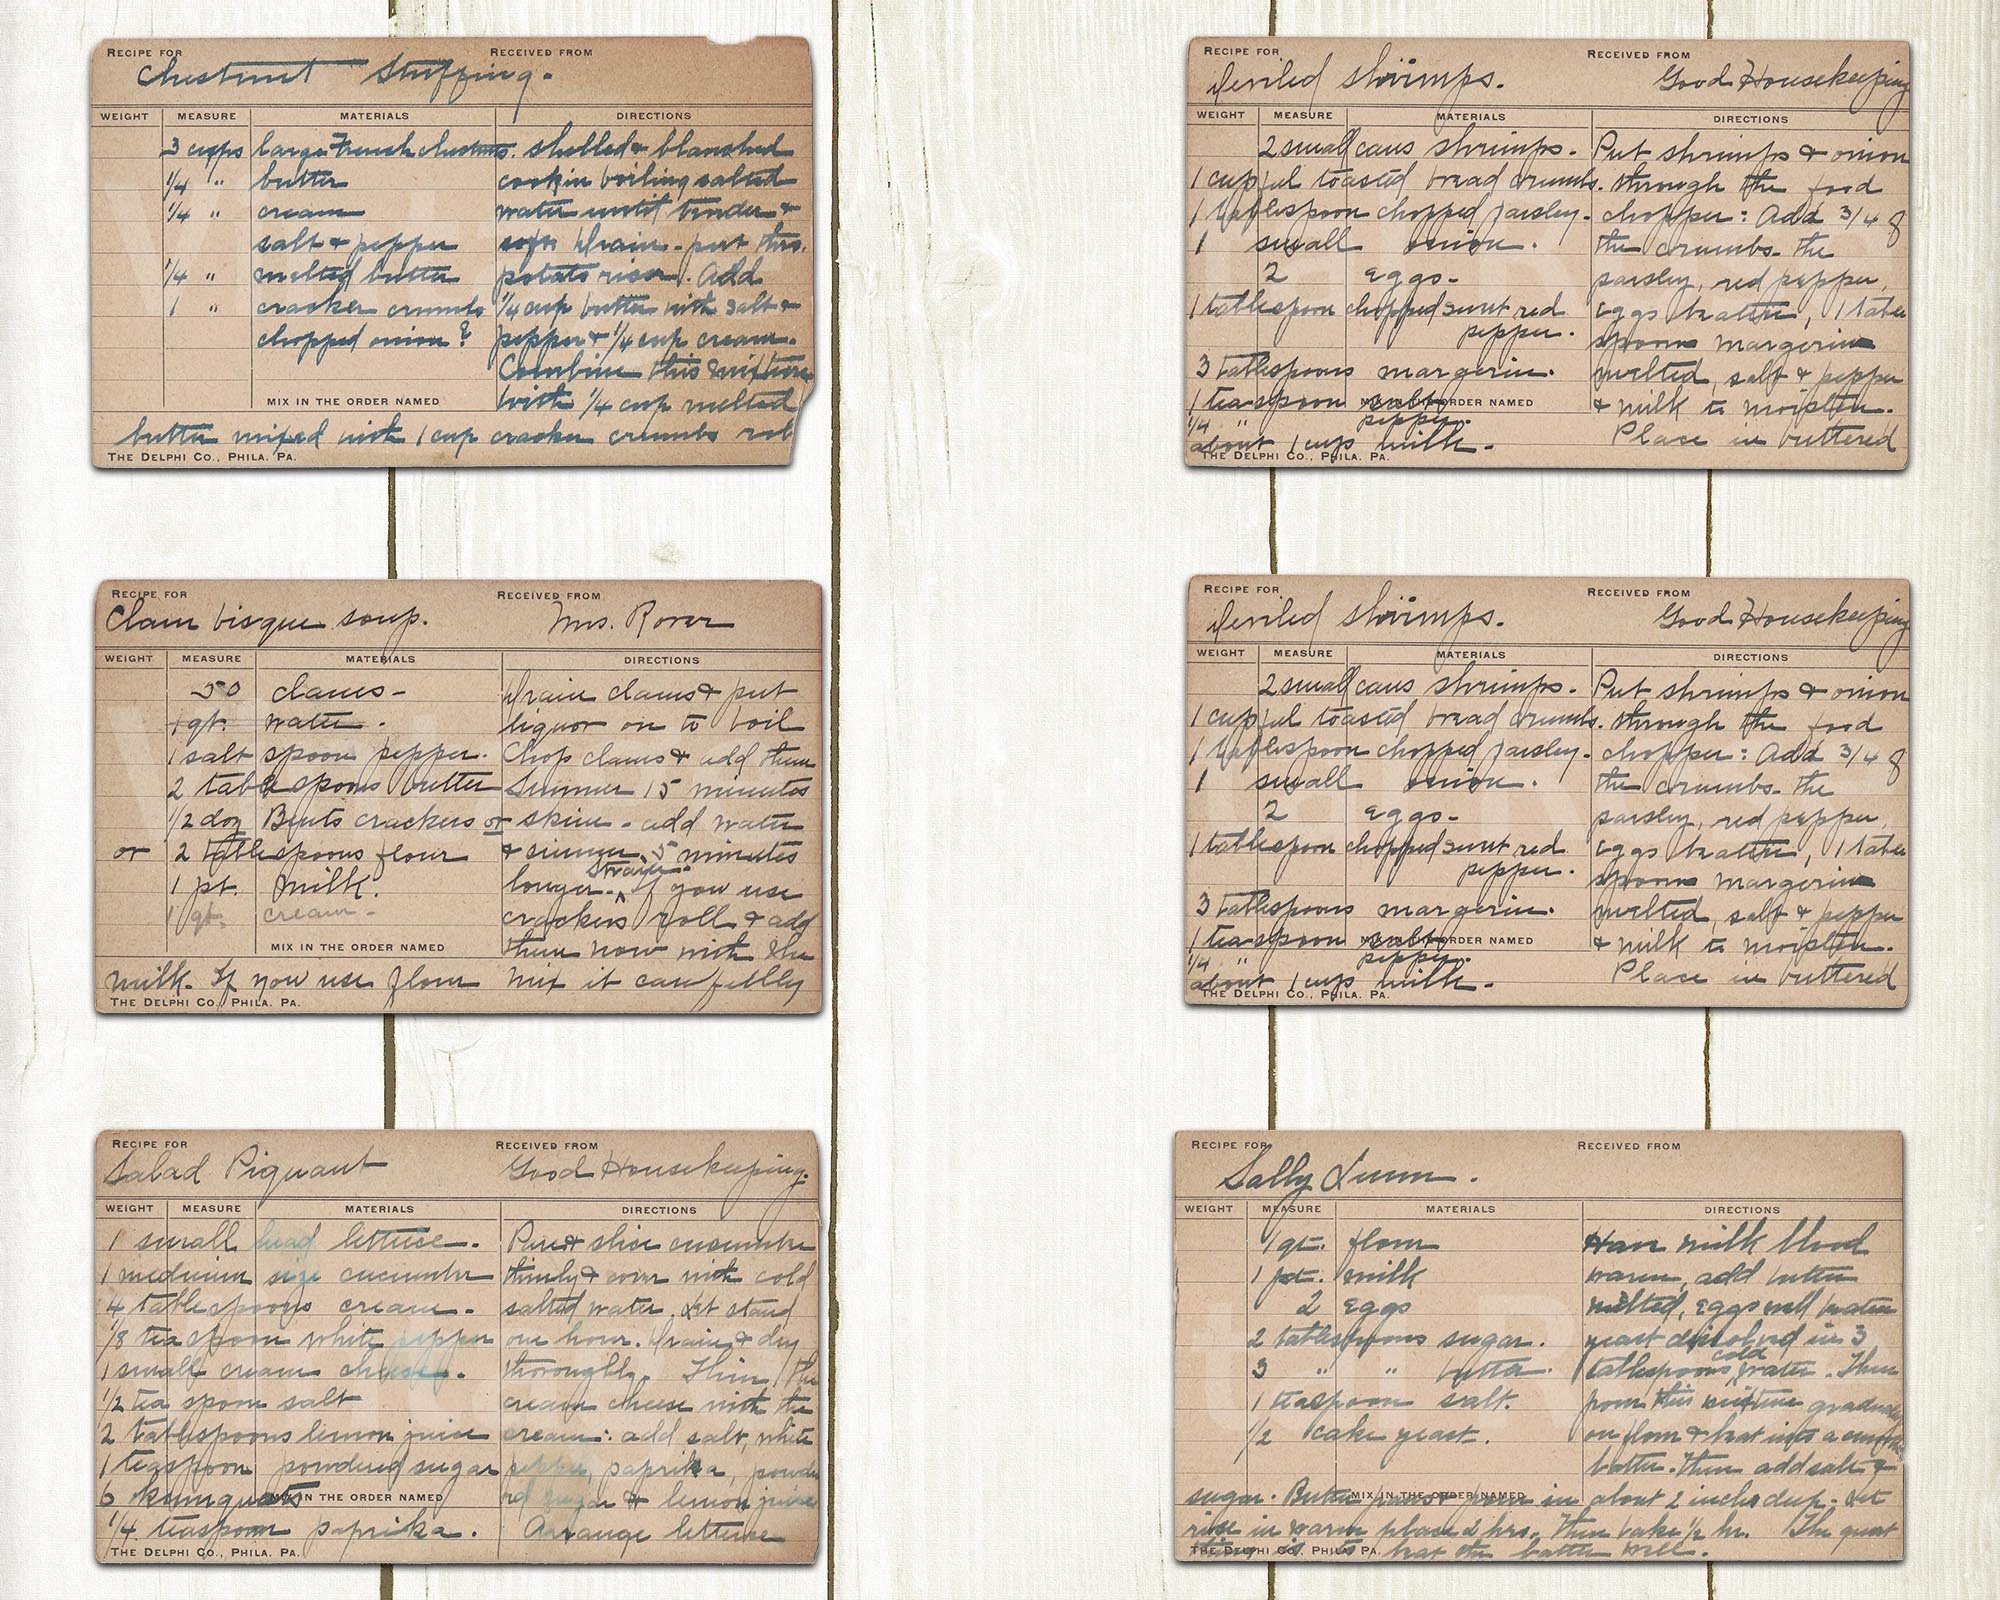 RECIPE FOR RECEIVED FROM
Chestnut Stuffing.
WEIGHT MEASURE MATERIALS DIRECTIONS
3 cups large French chestnuts. shelled & blanched
1/4 " butter cook in boiling salted
1/4 " cream water until tender &
salt & pepper soft Drain - put thro.
1/4 " melted butter potato ricer. Add
1 " cracker crumbs 1/4 cup butter with salt &
chopped onion? pepper & 1/4 cup cream.
Combine this mixture
MIX IN THE ORDER NAMED with 1/4 cup melted
butter mixed with 1 cup cracker crumbs
THE DELPHI CO., PHILA. PA.
RECIPE FOR RECEIVED FROM
Clam bisque soup. Mrs. Rorer
WEIGHT MEASURE MATERIALS DIRECTIONS
50 clams - Drain clams & put
1 qt. water. liquor on to boil
1 salt spoon pepper. Chop clams & add them
2 tablespoons butter Simmer 15 minutes
1/2 doz Bents crackers or skim - add water
or 2 tablespoons flour & simmer 5 minutes
strain.
1 pt. milk. longer. ^ If you use
1 qt. cream - crackers roll & add
MIX IN THE ORDER NAMED them now with the
milk. If you use flour mix it carefully
THE DELPHI CO., PHILA. PA.
RECIPE FOR RECEIVED FROM
Salad Piquant Good Housekeeping.
WEIGHT MEASURE MATERIALS DIRECTIONS
1 small head lettuce. Pare & slice cucumber
1 medium size cucumber thinly & cover with cold
4 tablespoons cream. salted water. Let stand
1/8 teaspoon white pepper one hour. Drain & dry
1 small cream cheese. thoroughly. Thin the
1/2 tea spoon salt cream cheese with the
2 tablespoons lemon juice cream: add salt, white
1 teaspoon powdered sugar pepper, paprika, powde
6 kumquats MIX IN THE ORDER NAMED red sugar & lemon juice
1/4 teaspoon paprika. Arrange lettuce
THE DELPHI CO., PHILA. PA.
RECIPE FOR RECEIVED FROM
Deviled shrimps. Good Housekeeping
WEIGHT MEASURE MATERIALS DIRECTIONS
2 small cans shrimps. Put shrimps & onion
1 cupful toasted bread crumbs. through the food
1 tablespoon chopped parsley. chopper: Add 3/4 of
1 small onion. the crumbs. the
2 eggs - parsley, red pepper,
1 tablespoon chopped sweet red eggs beaten, 1 table
pepper. spoon margerine
3 tablespoons margerine. melted, salt & pepper
1 tea-spoon salt MIX IN THE ORDER NAMED & milk to moisten.
1/4 " pepper.
about 1 cup milk. Place in buttered
THE DELPHI CO., PHILA. PA.
RECIPE FOR RECEIVED FROM
Deviled shrimps. Good Housekeeping
WEIGHT MEASURE MATERIALS DIRECTIONS
2 small cans shrimps. Put shrimps & onion
1 cupful toasted bread crumbs. through the food
1 tablespoon chopped parsley. chopper: Add 3/4 of
1 small onion. the crumbs. the
2 eggs - parsley, red pepper,
1 tablespoon chopped sweet red eggs beaten, 1 table
pepper. spoon margerine
3 tablespoons margerine. melted, salt & pepper
1 tea-spoon salt MIX IN THE ORDER NAMED & milk to moisten.
1/4 " pepper.
about 1 cup milk. Place in buttered
THE DELPHI CO., PHILA. PA.
RECIPE FOR RECEIVED FROM
Sally Lunn.
WEIGHT MEASURE MATERIALS DIRECTIONS
1 qt. flour Have milk blood
1 pt. milk warm, add butter
2 eggs melted, eggs well beaten
2 tablespoons sugar. yeast dissolved in 3
cold
3 " " butter. tablespoons water. Then
1 teaspoon salt. pour this mixture gradually
1/2 cake yeast. on flour & beat into a smooth
batter. Then add salt &
sugar. Butter pans & pour in about 2 inches deep. Let
MIX IN THE ORDER NAMED
rise in warm place 2 hrs. Then bake 1/2 hr. The great
thing is to beat the batter well.
THE DELPHI CO., PHILA. PA.